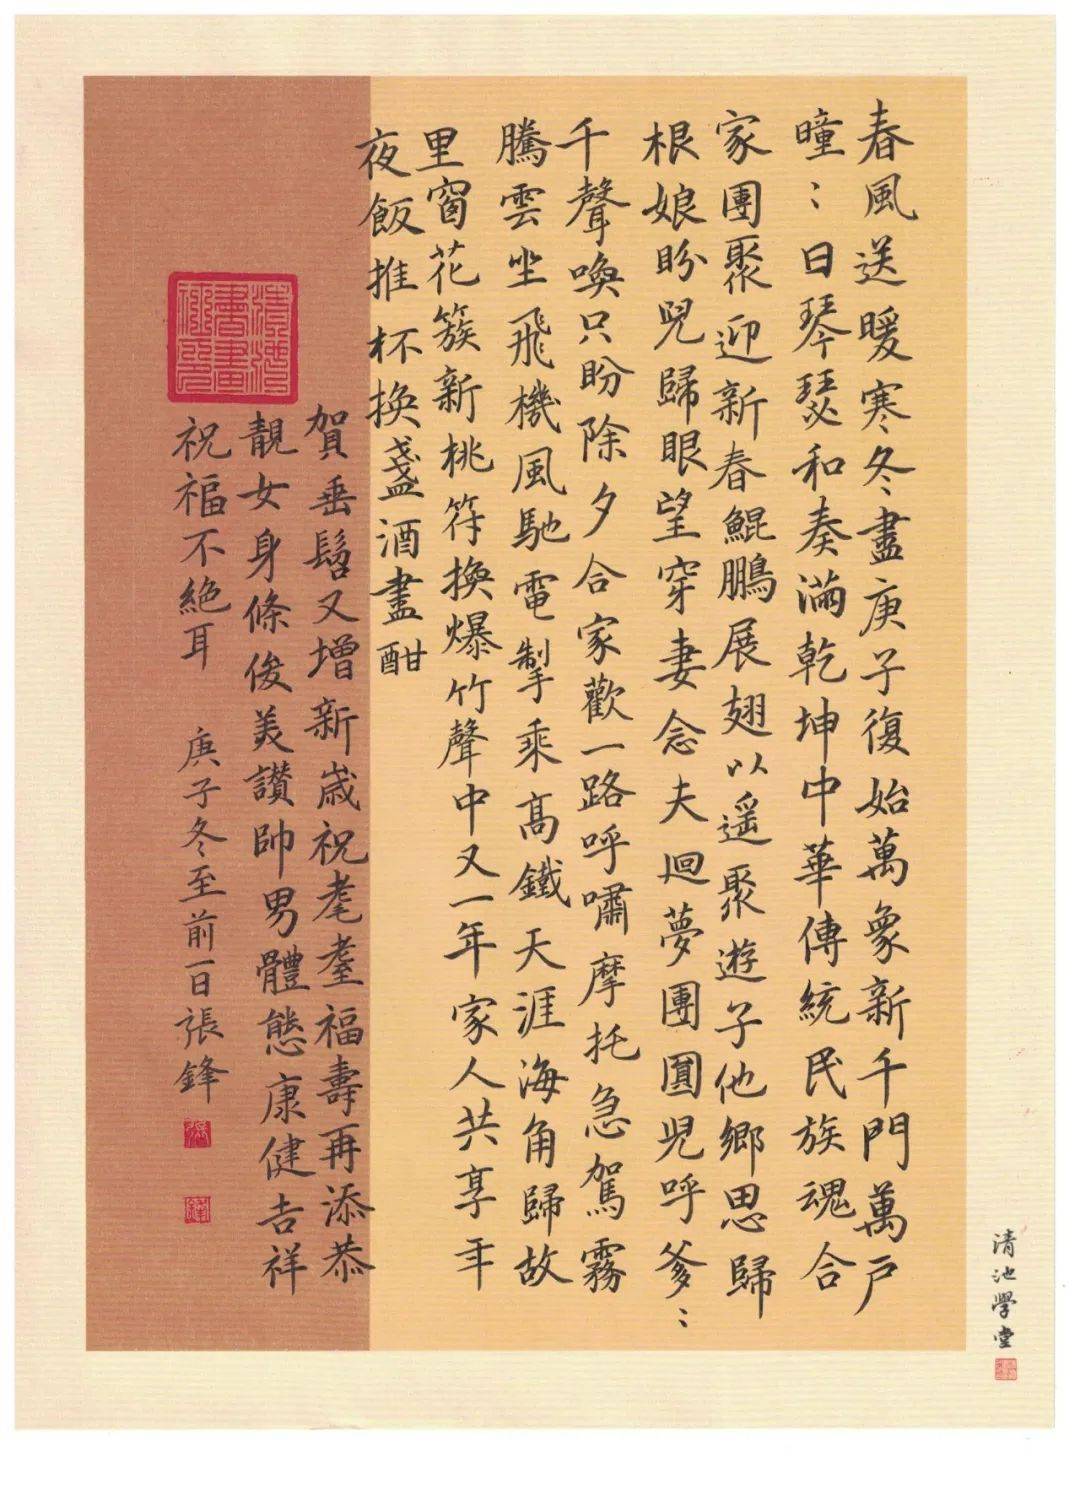 春風送暖寒冬盡庚子復始萬象新千門萬戶
曈〻日琴瑟和奏滿乾坤中華傳統民族魂合
家團聚迎新春鯤鵬展翅以遥聚遊子他鄉思歸
根娘盼兒歸眼望穿妻念夫迴夢團圓兒呼爹〻
千聲喚只盼除夕合家歡一路呼嘯摩托急駕霧
騰雲坐飛機風馳電掣乘高鐵天涯海角歸故
里窗花簇新桃符換爆竹聲中又一年家人共享年
夜飯推杯換盞酒盡酣
賀垂髫又增新歲祝耄耋福壽再添恭
靚女身條俊美讚帥男體態康健吉祥
祝福不絕耳 庚子冬至前一日張鋒
張
鋒
清池學堂